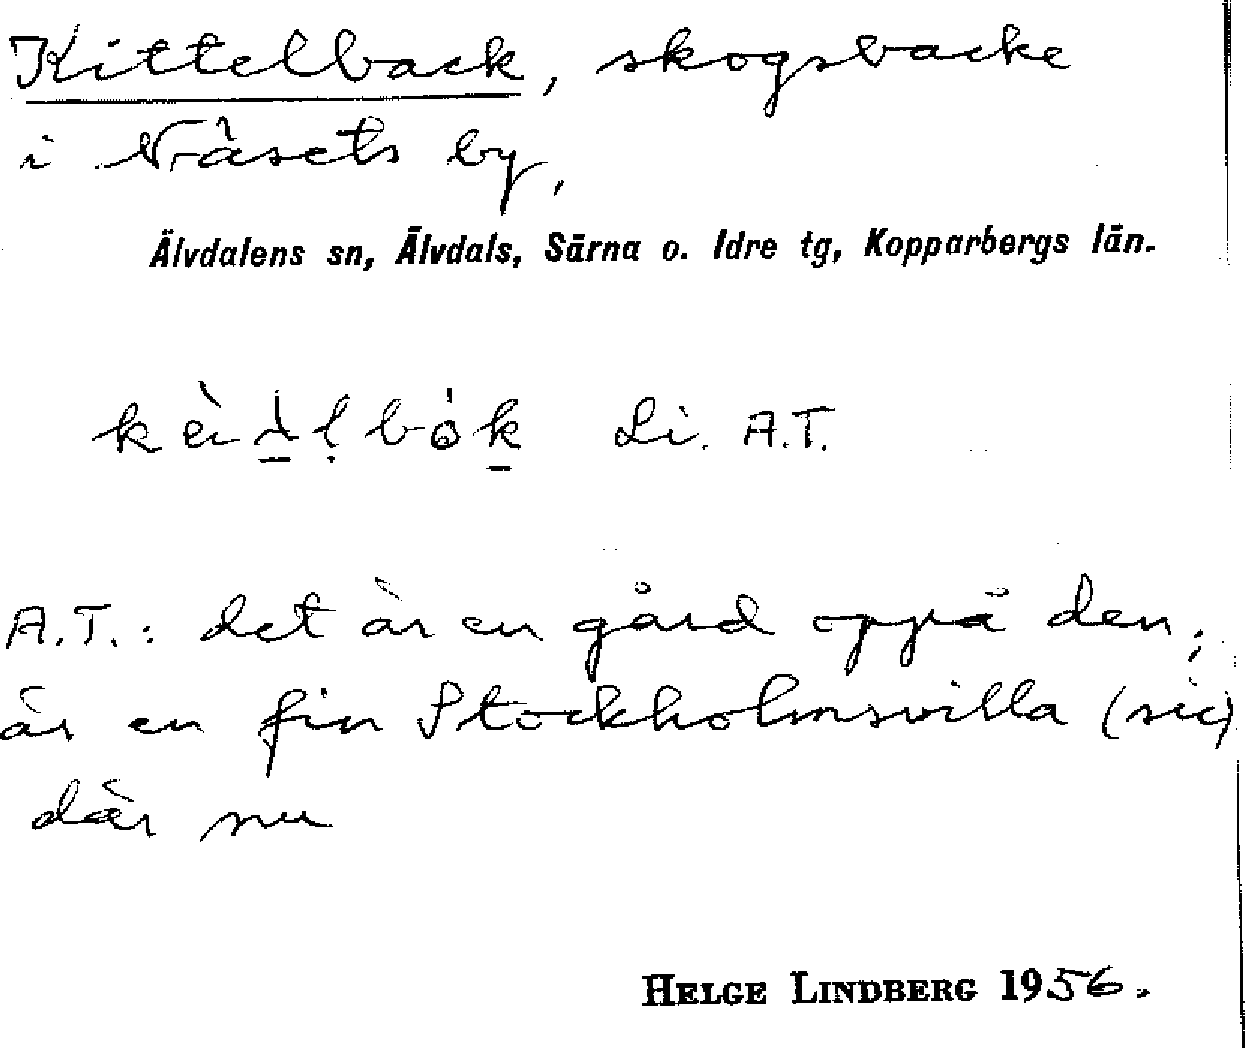 Kittelback, skogsbacke
i Näsets by,
Älvdalens sn, Älvdals, Särna o. Idre tg, Kopparbergs län.
Li. A.T.
A.T.: det är en gård oppå den;
är en fin Stockholmsvilla (sic)
där nu
HELGE LINDBERG 1956.